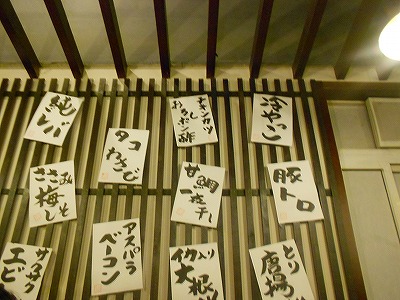 純レバ
タコ
わさび
チキンカツ
おろしポン酢
冷やっこ
ささみ
梅しそ
甘鯛
一夜干し
豚トロ
エビ
アスパラ
ベーコン
イカ入り
大根
とり
唐揚